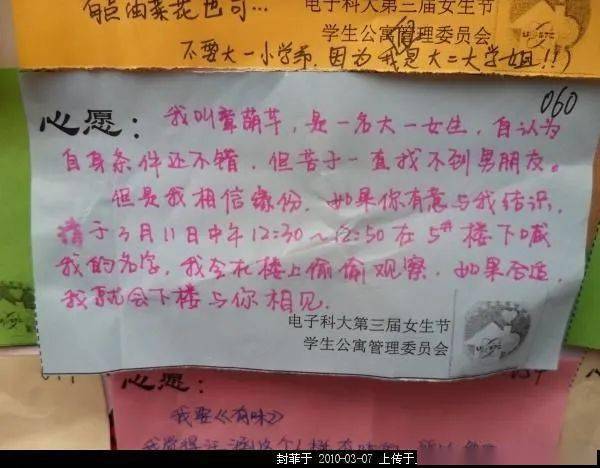 有点油菜花也可...
电子科大第三届女生节
学生公寓管理委员会
不要大一小学弟,因为我是大二大学姐!!)
060
心愿: 我叫章萌芊,是一名大一女生,自认为
自身条件还不错,但苦于一直找不到男朋友。
但是我相信缘份,如果你有意与我结识,
请于3月11日中午12:30~12:50在5#楼下喊
我的名字,我会在楼上偷偷观察,如果合适,
我就会下楼与你相见.
电子科大第三届女生节
学生公寓管理委员会
心愿:
我要《有味》
封菲于 2010-03-07 上传于